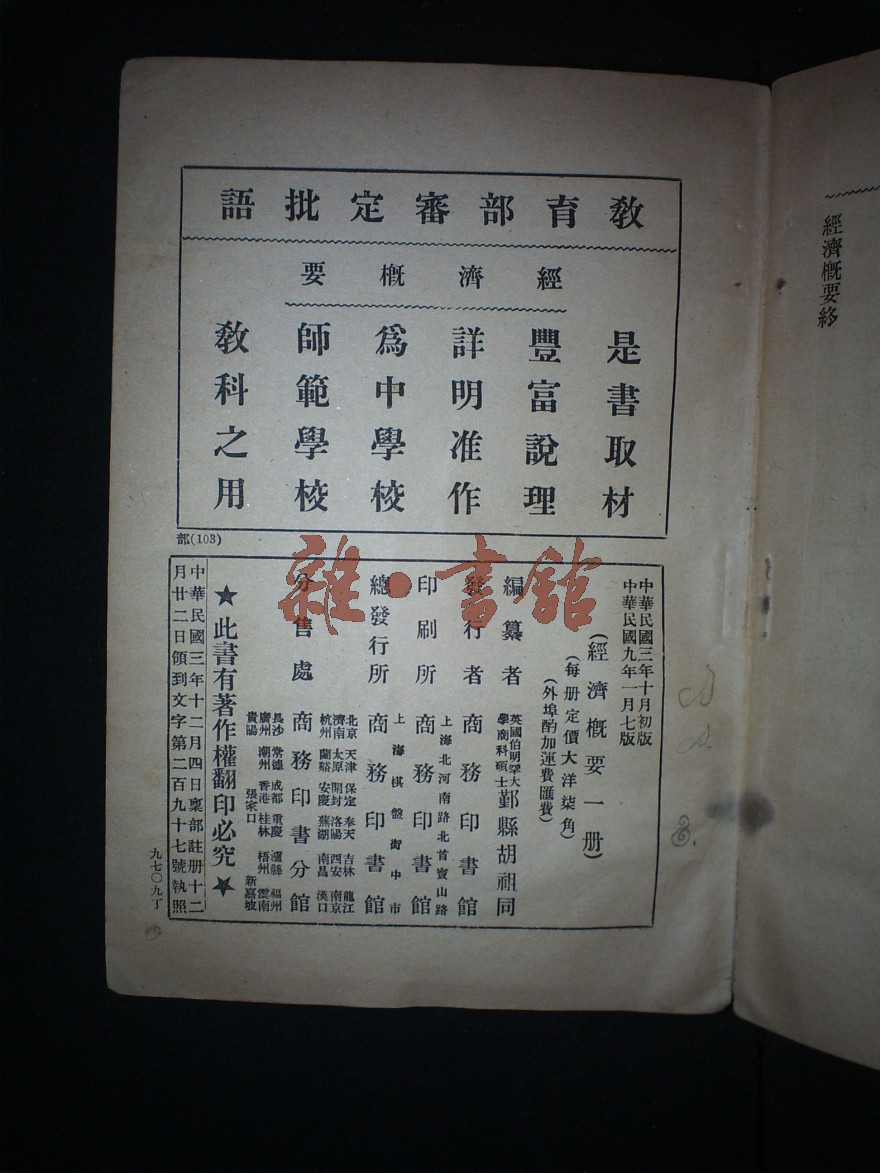 經濟概要終
教育部審定批語
經濟概要
是書取材
豐富說理
詳明准作
爲中學校
師範學校
教科之用
部(103)
中華民國三年十月初版
中華民國九年一月七版
(經濟概要一册)
(每册定價大洋柒角)
(外埠酌加運費匯費)
編纂者 英國伯明罕大學商科碩士 鄞縣胡祖同
發行者 商務印書館
上海北河南路北首寶山路
印刷所 商務印書館
上海棋盤街中市
總發行所 商務印書館
分售處 商務印書分館
北京 天津 保定 奉天 吉林 龍江
濟南 太原 開封 洛陽 西安 南京
杭州 蘭谿 安慶 蕪湖 南昌 漢口
長沙 常德 成都 重慶 瀘縣 福州
廣州 潮州 香港 桂林 梧州 雲南
貴陽 張家口 新嘉坡
★此書有著作權翻印必究★
中華民國三年十二月四日稟部註册十二
月廿二日領到文字第二百九十七號執照
九七〇九丁
雜·書館